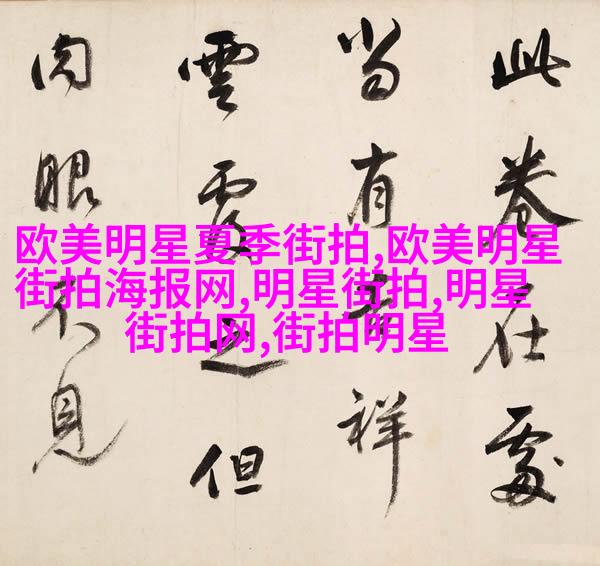 此卷在處
當有吉祥
雲覆之但
肉眼不見
欧美明星夏季街拍,欧美明星
街拍海报网,明星街拍,明星
街拍网,街拍明星